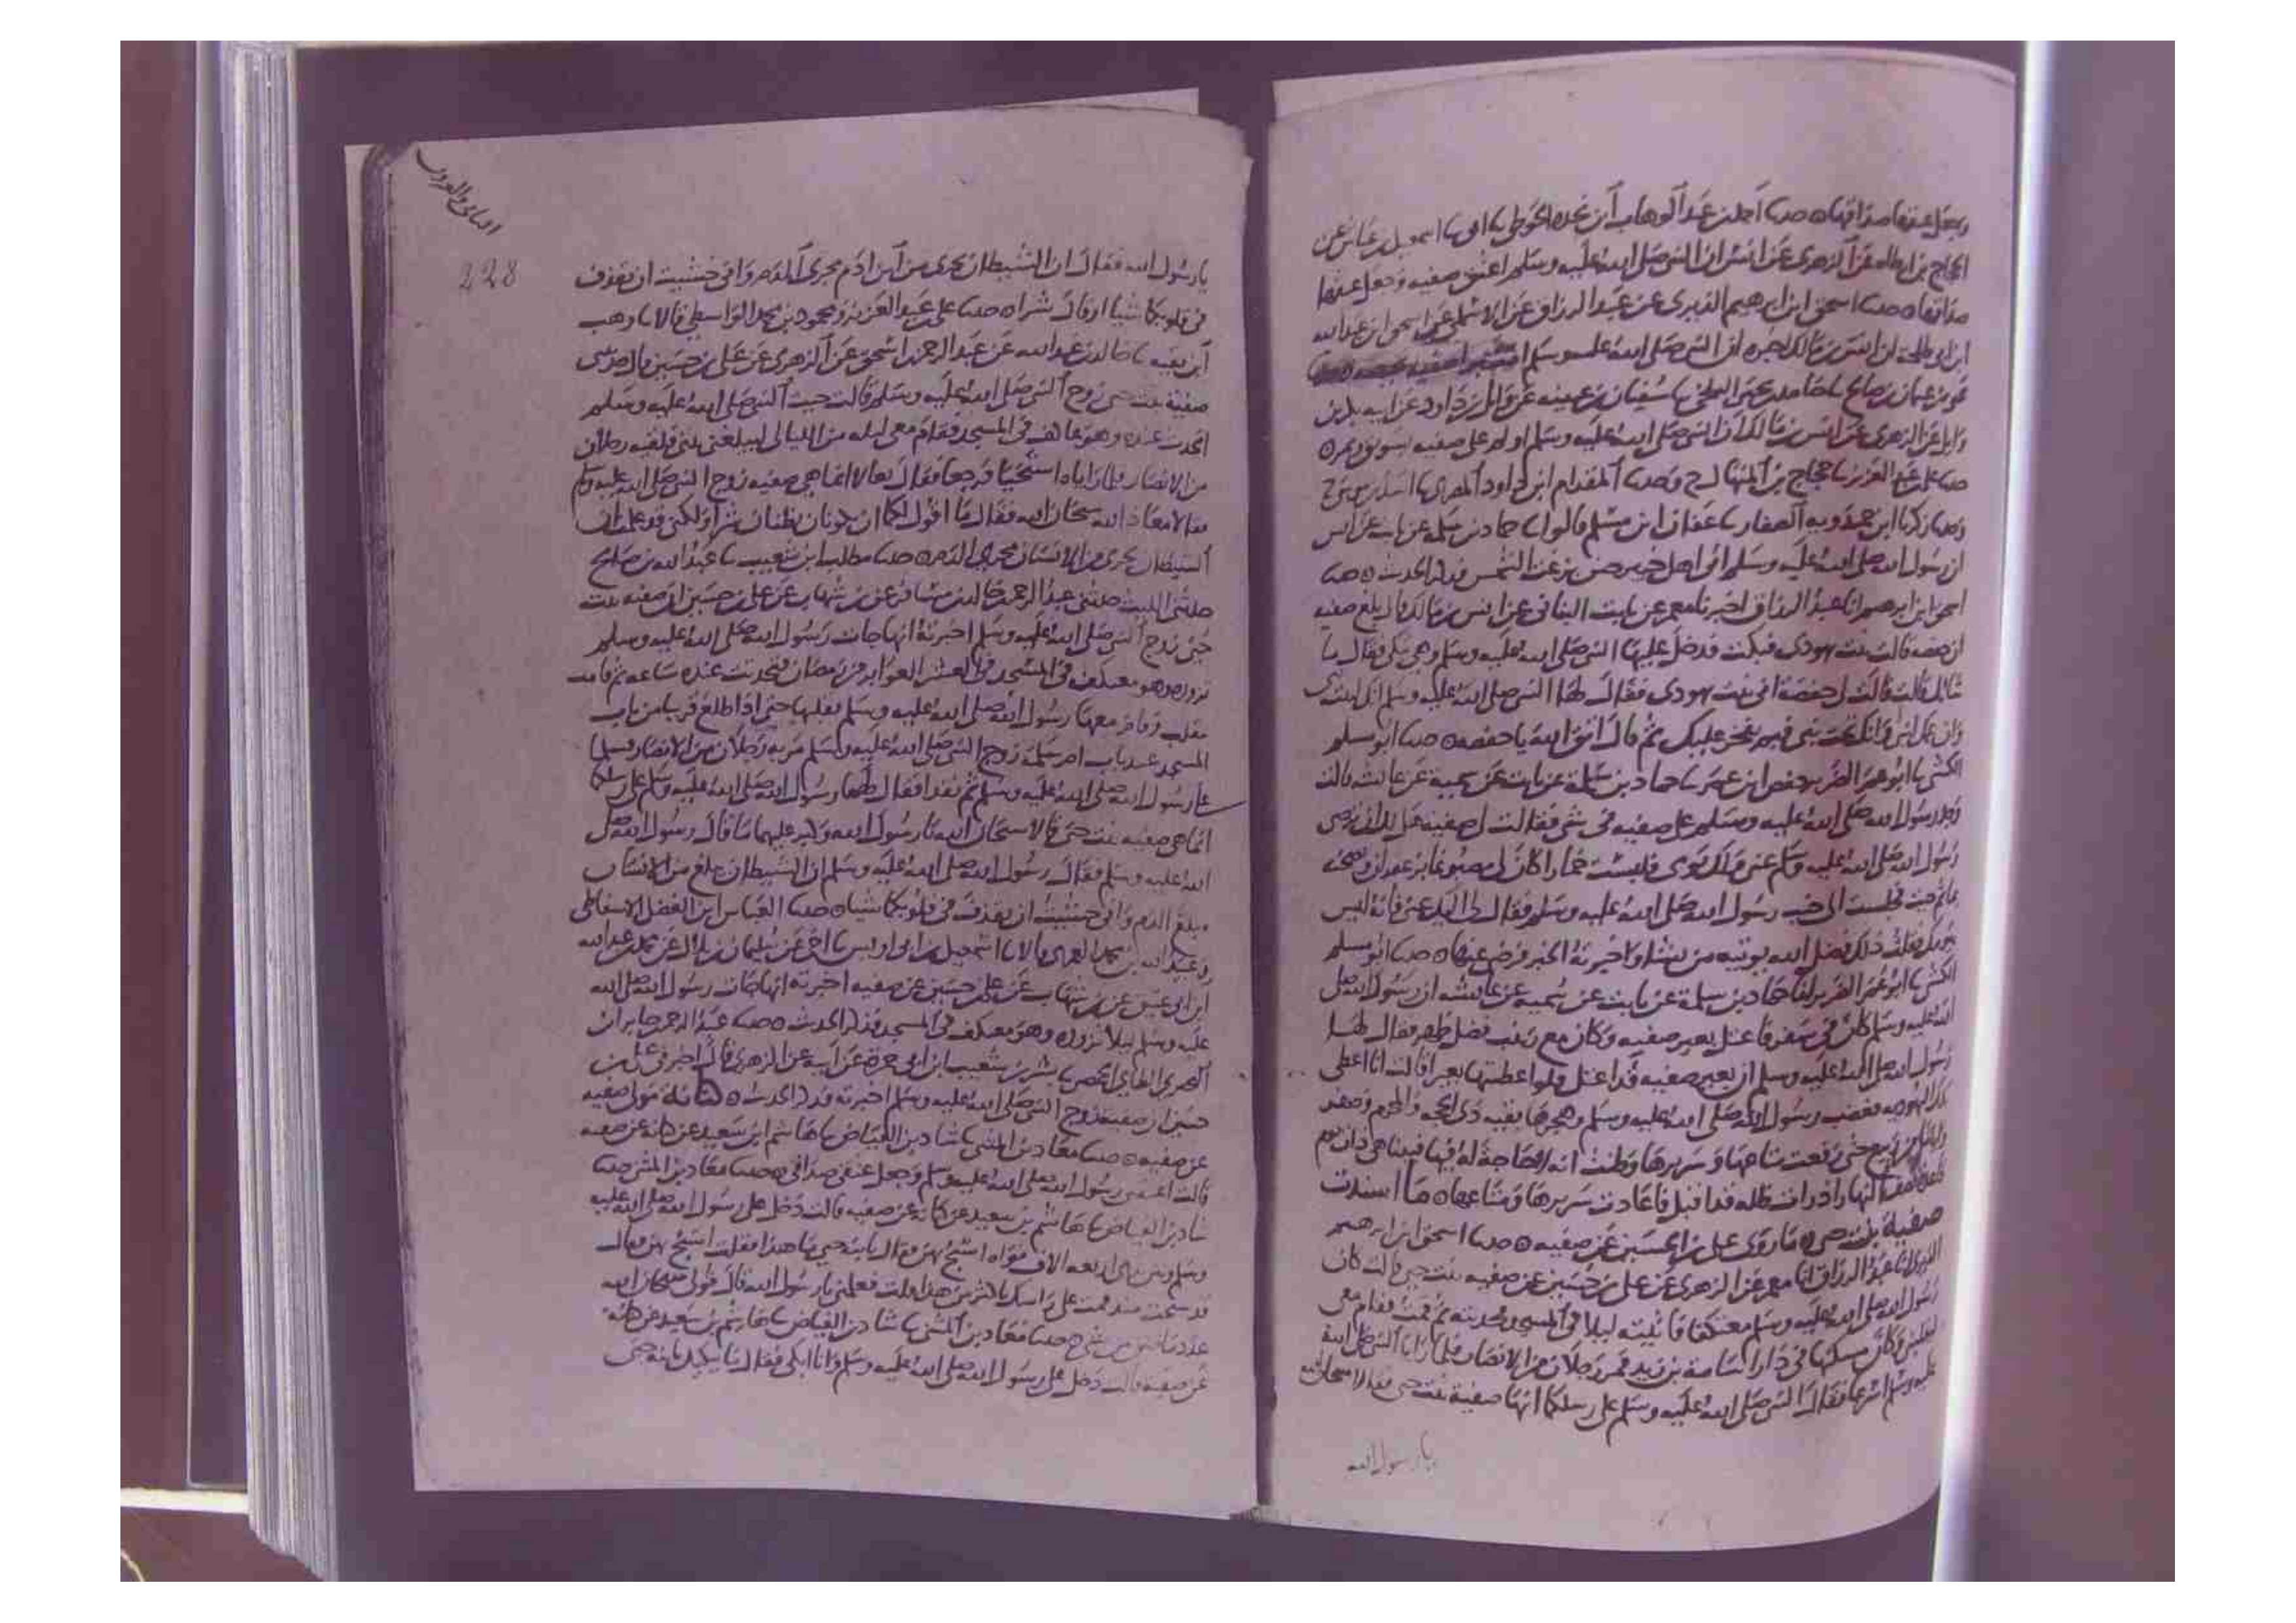 وجعل عتقها صداقها ه حدثنا احمد بن عبد الوهاب بن نجده الحوطي ثنا ابي ثنا اسمعيل بن عياش عن
الحجاج بن ارطاه عن الزهري عن انس ان النبي صلى الله عليه وسلم اعتق صفيه وجعل عتقها
صداقها ه حدثنا اسحق ابن ابرهيم الدبري عن عبد الرزاق عن الاسلمي عن اسحق ابن عبد الله
ابن ابي طلحه ان انس بن مالك اخبره ان النبي صلى الله عليه وسلم
بن عثمان بن صالح ثنا حامد بن يحيى البلخي ثنا سفيان بن عيينه عن وايل بن داود عن ابيه بكر بن
وايل عن الزهري عن انس بن مالك ان النبي صلى الله عليه وسلم اولم على صفيه بسويق وتمر ه
حدثنا علي بن عبد العزيز ثنا حجاج بن المنهال ح وحدثنا المقدام ابن داود المصري ثنا اسد بن موسى ح
وحدثنا زكريا ابن حمدويه الصفار ثنا عفان ابن مسلم قالوا ثنا حماد بن سلمه عن ثابت عن انس
ان رسول الله صلى الله عليه وسلم اتى اهل خيبر حين بزغت الشمس فذكر الحديث ه حدثنا
اسحق ابن ابرهيم انا عبد الرزاق اخبرنا معمر عن ثابت البناني عن انس بن مالك قال بلغ صفيه
ان حفصه قالت بنت يهودي فبكت فدخل عليها النبي صلى الله عليه وسلم وهي تبكي فقال ما
شانك قالت قالت لي حفصة اني بنت يهودي فقال لها النبي صلى الله عليه وسلم انك ابنة نبي
وان عمك لنبي وانك تحت نبي فبم تفخر عليك ثم قال اتق الله يا حفصه ه حدثنا ابو مسلم
الكشي ثنا ابو عمر الضرير حفص ابن عمر ثنا حماد بن سلمة عن ثابت عن سمية عن عائشه قالت
وجد رسول الله صلى الله عليه وسلم على صفيه في شي فقالت لي صفيه هل لك ان ترضي
رسول الله صلى الله عليه وسلم عني ولك يومي فلبست خمارا كان لي مصبوغا بزعفران ونضحته
بما ثم جيت فجلست الى جنب رسول الله صلى الله عليه وسلم فقال لي اليك عني فانه ليس
بيومك فقلت ذلك فضل الله يوتيه من يشاء واخبرته الخبر فرضي عنها ه حدثنا ابو مسلم
الكشي ثنا ابو عمر الضرير انا حماد بن سلمة عن ثابت عن سميه عن عائشه ان رسول الله صلى
الله عليه وسلم كان في سفر فاعتل بعير صفيه وكان مع زينب فضل ظهر فقال لها
رسول الله صلى الله عليه وسلم ان بعير صفيه قد اعتل فلو اعطيتها بعيرا قالت انا اعطي
تلك اليهوديه فغضب رسول الله صلى الله عليه وسلم وهجرها بقية ذي الحجه والمحرم وصفر
واياما من ربيع حتى رفعت متاعها وسريرها وظنت انه لا حاجة له فيها فبينا هي ذات يوم
قاعدة نصف النهار اذ رات ظله قد اقبل فاعادت سريرها ومتاعها ه ما اسندت
صفية بنت حيي ه ما روى علي بن الحسين عن صفيه ه حدثنا اسحق ابن ابرهيم
الدبري انا عبد الرزاق انا معمر عن الزهري عن علي بن حسين عن صفيه بنت حيي قالت كان
رسول الله صلى الله عليه وسلم معتكفا فاتيته ليلا في المسجد فحدثته ثم قمت فقام معي
ليقلبني وكان مسكنها في دار اسامة بن زيد فمر رجلان من الانصار فلما رايا النبي صلى الله
عليه وسلم اسرعا فقال النبي صلى الله عليه وسلم على رسلكما انها صفية بنت حيي فقالا سبحان الله
يا رسول الله
228
يا رسول الله فقال ان الشيطان يجري من ابن ادم مجرى الدم واني خشيت ان يقذف
في قلوبكما شيا او قال شرا ه حدثنا علي بن عبد العزيز ومحمود بن محمد الواسطي قالا ثنا وهب
ابن بقيه ثنا خالد بن عبد الله عن عبد الرحمن بن اسحق عن الزهري عن علي بن حسين قال حدثتني
صفية بنت حيي زوج النبي صلى الله عليه وسلم قالت جيت النبي صلى الله عليه وسلم
اتحدث عنده وهو عاكف في المسجد فقام معي ليله من الليالي ليبلغني بيتي فلقيه رجلان
من الانصار فلما راياه استحييا فرجعا فقال تعالا انما هي صفيه زوج النبي صلى الله عليه وسلم
فقالا معاذ الله سبحان الله فقال ما اقول لكما ان تكونا تظنان شرا ولكني قد علمت ان
الشيطان يجري من الانسان مجرى الدم ه حدثنا مطلب ابن شعيب ثنا عبد الله بن صالح
حدثني الليث حدثني عبد الرحمن بن خالد بن مسافر عن بن شهاب عن علي بن حسين ان صفيه بنت
حيي زوج النبي صلى الله عليه وسلم اخبرته انها جات رسول الله صلى الله عليه وسلم
تزوره وهو معتكف في المسجد في العشر الغوابر من رمضان فتحدثت عنده ساعه ثم قامت
تنقلب وقام معها رسول الله صلى الله عليه وسلم يقلبها حتى اذا اطلع قريبا من باب
المسجد عند باب ام سلمة زوج النبي صلى الله عليه وسلم مر به رجلان من الانصار فسلما
على رسول الله صلى الله عليه وسلم ثم نفذا فقال لهما رسول الله صلى الله عليه وسلم على رسلكما
انما هي صفيه بنت حيي قالا سبحان الله يا رسول الله وكبر عليهما ما قال رسول الله صلى
الله عليه وسلم فقال رسول الله صلى الله عليه وسلم ان الشيطان يبلغ من الانسان
مبلغ الدم واني خشيت ان يقذف في قلوبكما شيا ه حدثنا العباس ابن الفضل الاسفاطي
وعبد الله بن محمد العمري قالا ثنا اسمعيل بن ابي اويس ثنا اخي عن سليمان بن بلال عن محمد بن عبد الله
ابن ابي عتيق عن بن شهاب عن علي بن حسين عن صفيه اخبرته انها جات رسول الله صلى الله
عليه وسلم ليلا تزوره وهو معتكف في المسجد فذكر الحديث ه حدثنا عبد الرحمن بن جابر
الطائي الحمصي ثنا بشر بن شعيب ابن ابي حمزة عن ابيه عن الزهري قال اخبرني علي بن
حسين ان صفيه زوج النبي صلى الله عليه وسلم اخبرته فذكر الحديث ه كنانة مولى صفيه
عن صفيه ه حدثنا معاذ بن المثنى ثنا شاذ بن الفياض ثنا هاشم ابن سعيد عن كنانه عن صفيه
قالت اعتقني رسول الله صلى الله عليه وسلم وجعل عتقي صداقي ه حدثنا معاذ بن المثنى حدثنا
شاذ بن الفياض ثنا هاشم بن سعيد عن كنانه عن صفيه قالت دخل علي رسول الله صلى الله عليه
وسلم وبين يدي اربعة الاف نواه اسبح بهن فقال يا بنت حيي ما هذا فقلت اسبح بهن فقال
قد سبحت منذ قمت على راسك اكثر من هذا قلت فعلمني يا رسول الله قال قولي سبحان الله
عدد ما خلق من شي ح حدثنا معاذ بن المثنى ثنا شاذ بن الفياض ثنا هاشم بن سعيد عن كنانه
عن صفيه قالت دخل علي رسول الله صلى الله عليه وسلم وانا ابكي فقال ما يبكيك يا بنة حيي